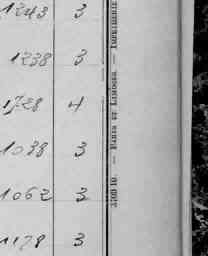 1243 3
1238 3
1728 4
1038 3
1062 3
1178 3
3200 10. — PARIS ET LIMOGES. — IMPRIMERIE